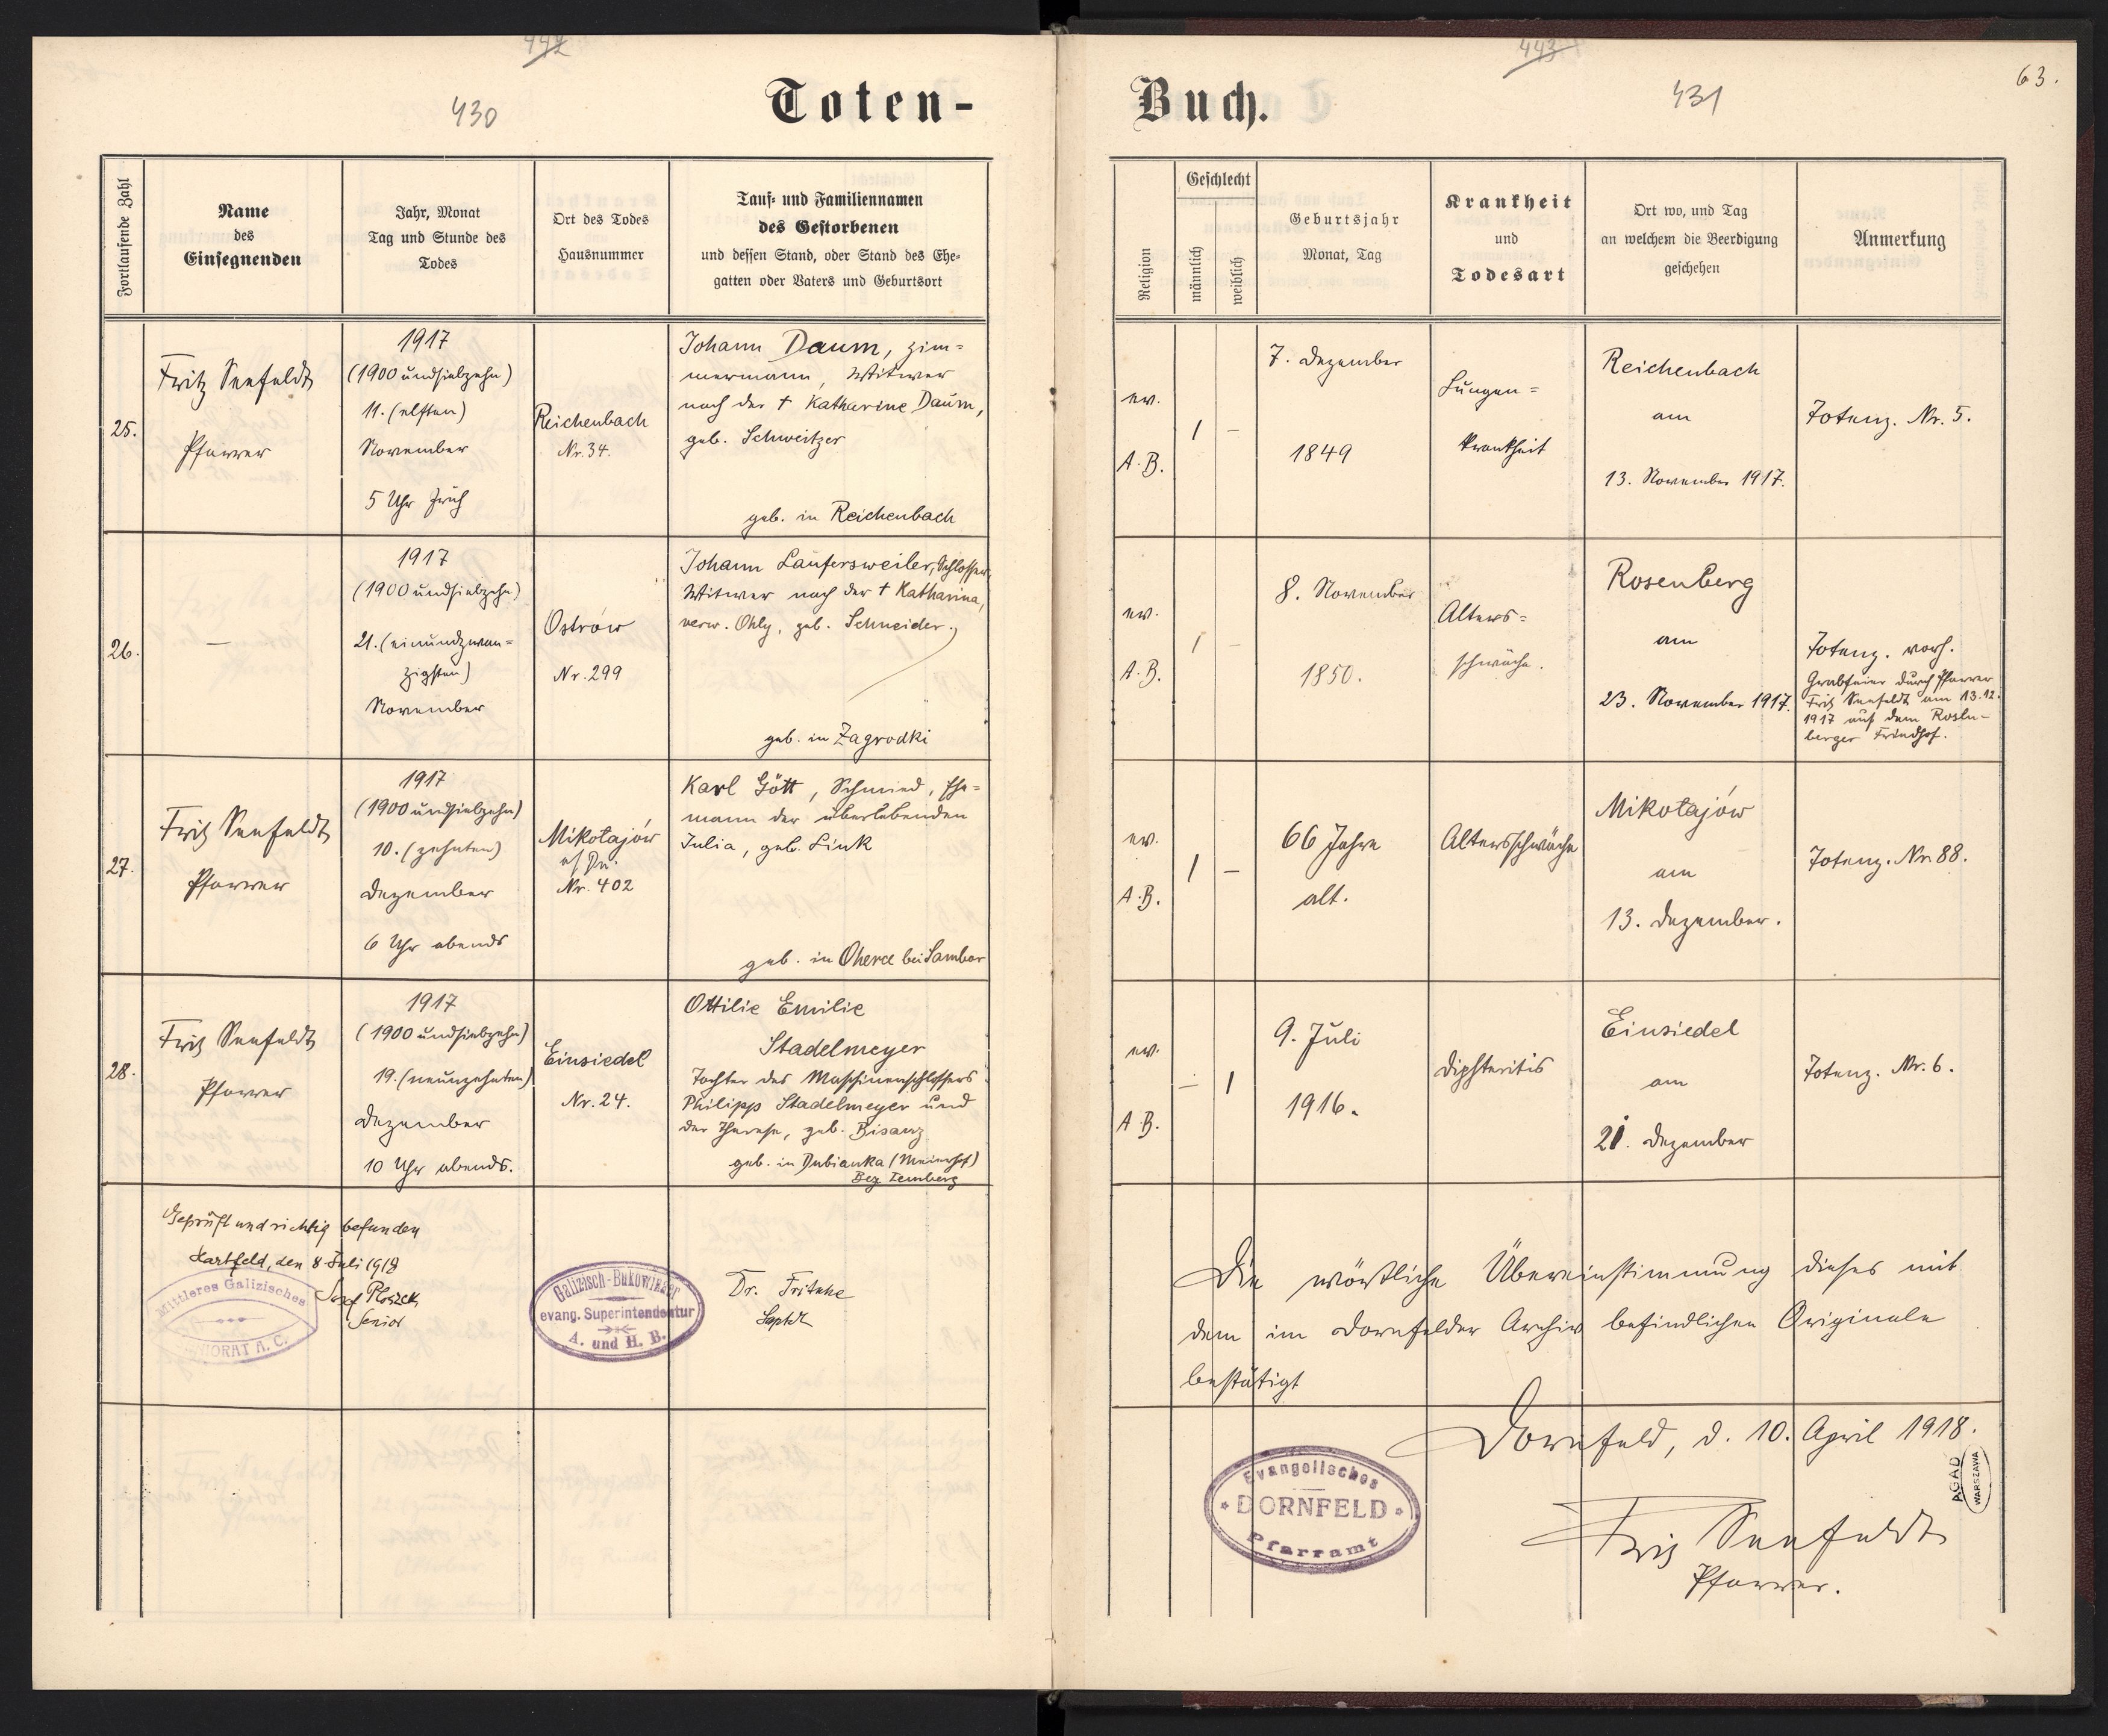 442
430
Toten-
Fortlaufende Zahl
Name
des
Einsegnenden
Jahr, Monat
Tag und Stunde des
Todes
Ort des Todes
Hausnummer
Tauf- und Familiennamen
des Gestorbenen
und dessen Stand, oder Stand des Ehe-
gatten oder Vaters und Geburtsort
25.
Fritz Seefeldt
Pfarrer
1917
(1900 undsiebzehn)
11. (elften)
November
5 Uhr früh
Reichenbach
Nr. 34.
Johann Daum, Zim=
mermann, Witwer
nach der † Katharine Daum,
geb. Schweitzer
geb. in Reichenbach
26.
—
1917
(1900 undsiebzehn)
21. (einundzwan=
zigsten)
November
Ostrów
Nr. 299
Johann Laufersweiler, Schlosser,
Witwer nach der † Katharina,
verw. Ohly, geb. Schneider.
geb. in Zagrodki
27.
Fritz Seefeldt
Pfarrer
1917
(1900 undsiebzehn)
10. (zehnten)
Dezember
6 Uhr abends
Mikołajów
Nr. 402
Karl Gött, Schmied, Ehe=
mann der überlebenden
Julia, geb. Link
geb. in Oherce bei Sambor
28.
Fritz Seefeldt
Pfarrer
1917
(1900 undsiebzehn)
19. (neunzehnten)
Dezember
10 Uhr abends.
Einsiedel
Nr. 24.
Ottilie Emilie
Stadelmeyer
Tochter des Maschinenschlossers
Philipp Stadelmeyer und
der Therese, geb. Bisanz
geb. in Dubianka (Meierhof)
Bez Lemberg
Geprüft und richtig befunden
Hartfeld, den 8 Juli 1918
Josef Ploszek
Senior
Mittleres Galizisches
SENIORAT A. C.
Galizisch-Bukowinaer
evang. Superintendentur
A. und H. B.
Dr. Fritsche
443
Buch.
431
63.
Religion
Geschlecht
männlich
weiblich
Geburtsjahr
Monat, Tag
Krankheit
und
Todesart
Ort wo, und Tag
an welchem die Beerdigung
geschehen
Anmerkung
ev.
A. B.
1
–
7. Dezember
1849
Lungen=
krankheit
Reichenbach
am
13. November 1917.
Totenz. Nr. 5.
ev.
A. B.
1
–
8. November
1850.
Alters=
schwäche.
Rosenberg
am
23. November 1917.
Totenz. vorh.
Grabfeier durch Pfarrer
Fritz Seefeldt am 13.12.
1917 auf dem Rosen-
berger Friedhof.
ev.
A. B.
1
–
66 Jahre
alt.
Altersschwäche
Mikołajów
am
13. Dezember.
Totenz. Nr. 88.
ev.
A. B.
–
1
9. Juli
1916.
Diphteritis
Einsiedel
am
21. Dezember
Totenz. Nr. 6.
Die wörtliche Übereinstimmung dieses mit
dem im Dornfelder Archiv befindlichen Originale
bestätigt
Dornfeld, d. 10. April 1918.
Evangelisches
DORNFELD
Pfarramt
AGAD
WARSZAWA
Fritz Seefeldt
Pfarrer.